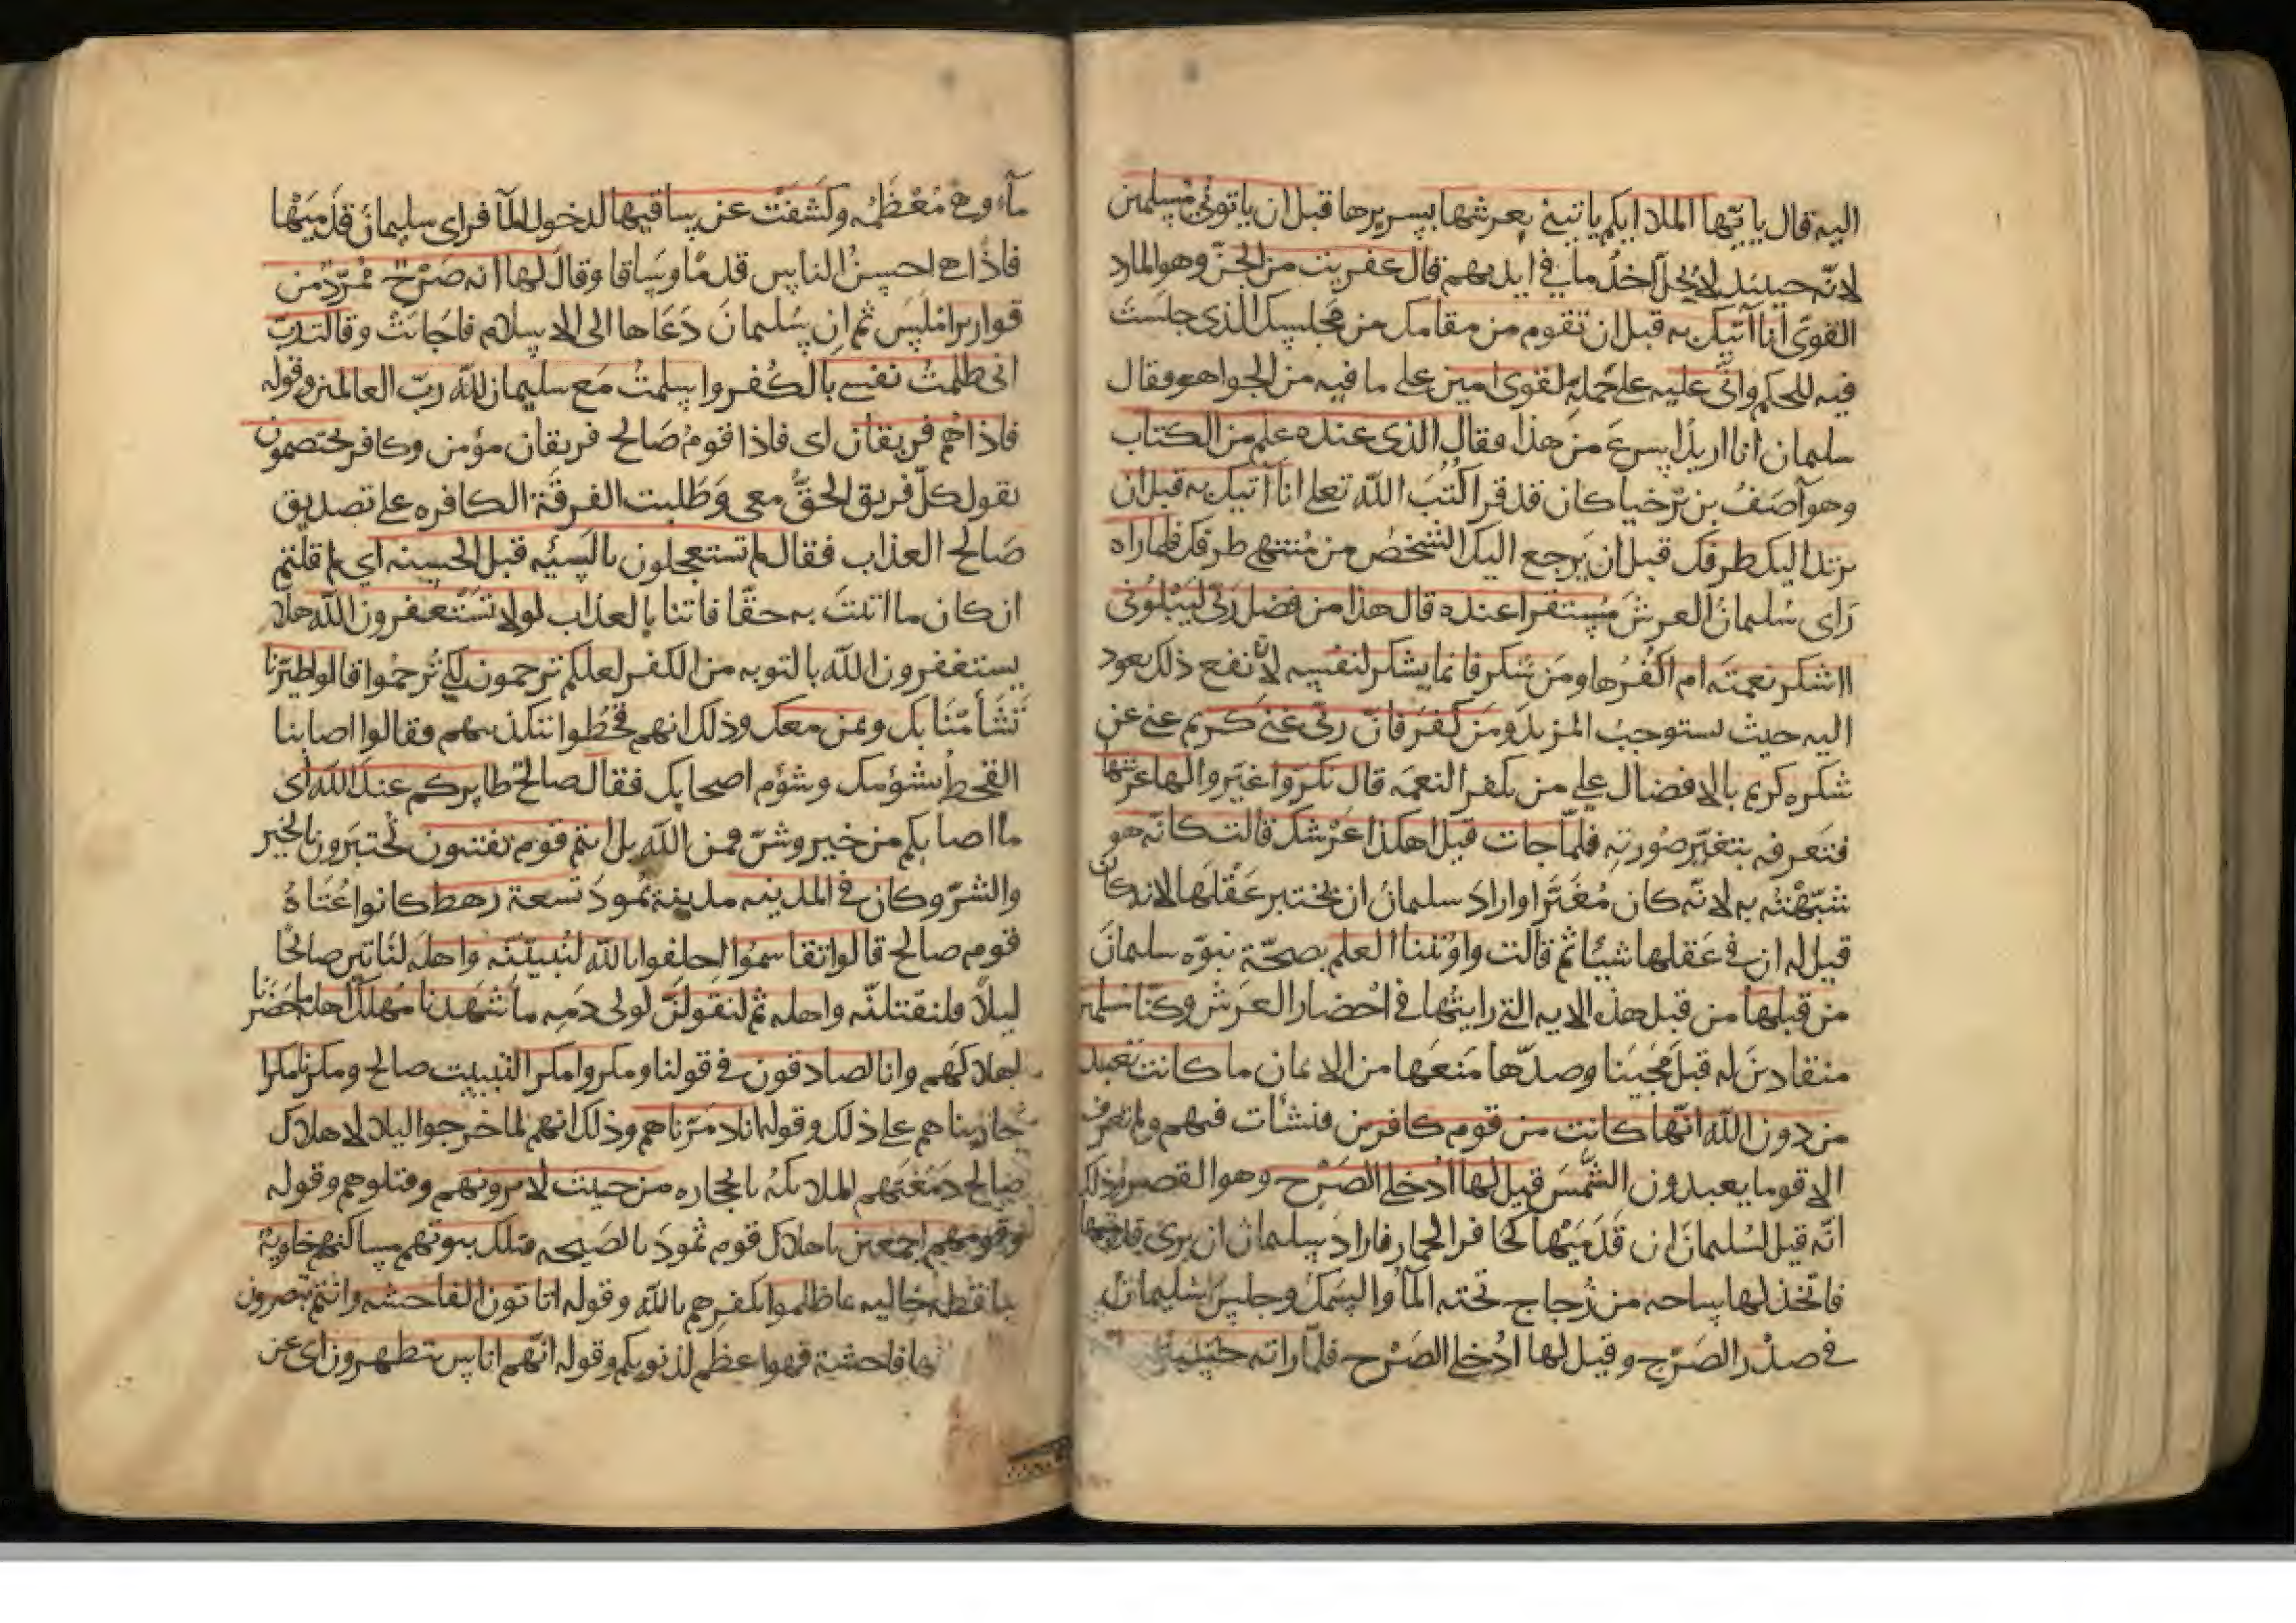 اليه قال يا يّها الملا ايكم ياتيني بعرشها بسريرها قبل ان ياتوني مسلمين
لانه حينيذ لا يحل اخذ ما في ايديهم قال عفريت من الجن وهو المارد
القوى انا آتيك به قبل ان تقوم من مقامك من مجلسك الذى جلست
فيه للحكم وانى عليه على حمله لقوى امين على ما فيه من الجواهر فقال
سليمان انا اريد اسرع من هذا فقال الذى عنده علم من الكتاب
وهو آصف بن برخيا كان قد قرا كتب الله تعلى انا آتيك به قبل ان
يرتد اليك طرفك قبل ان يرجع اليك الشخص من منتهى طرفك فلما راه
راى سليمان العرش مستقرا عنده قال هذا من فضل ربى ليبلونى
ااشكر نعمته ام اكفرها ومن شكر فانما يشكر لنفسه لان نفع ذلك يعود
اليه حيث يستوجب المزيد ومن كفر فان ربى غنى كريم غنى عن
شكره كريم بالافضال على من يكفر النعمه قال نكروا غيروا لها عرشها
فتعرفه بتغير صورته فلما جات قيل اهكذا عرشك قالت كانه هو
شبهته به لانه كان مغيرا واراد سليمان ان يختبر عقلها لانه كان
قيل له ان فى عقلها شيئا ثم قالت واوتينا العلم بصحة نبوه سليمان
من قبلها من قبل هذه الايه التى رايتها فى احضار العرش وكنا مسلمين
منقادين له قبل مجيئنا وصدها منعها من الايمان ما كانت تعبد
من دون الله انها كانت من قوم كافرين فنشات فيهم ولم تعرف
الا قوما يعبدون الشمس قيل لها ادخلى الصرح وهو القصر وذلك
انه قيل لسليمان ان قدميها كحافر الحمار فاراد سليمان ان يرى قدميها
فاتخذ لها ساحه من زجاج تحته المآ والسمك وجلس سليمان
فى صدر الصرح وقيل لها ادخلى الصرح فلما راته حسبته
مآء وهى معظمه وكشفت عن ساقيها لدخول المآ فراى سليمان قدميها
فاذا هى احسن الناس قدما وساقا وقال لها انه صرح ممرد من
قوارير املس ثم ان سليمان دعاها الى الاسلام فاجابت وقالت رب
انى ظلمت نفسى بالكفر واسلمت مع سليمان لله رب العالمين وقوله
فاذا هم فريقان اى فاذا قوم صالح فريقان مؤمن وكافر يختصمون
يقول كل فريق الحق معى وطلبت الفرقة الكافره على تصديق
صالح العذاب فقال لم تستعجلون بالسيئه قبل الحسنه اى لم قلتم
ان كان ما اتيت به حقا فاتنا بالعذاب لولا تستغفرون الله هلا
يستغفرون الله بالتوبه من الكفر لعلكم ترحمون لكى ترحموا قالوا اطيرنا
تشأمنا بك وبمن معك وذلك انهم قحطوا بتكذيبهم فقالوا اصابنا
القحط بشؤمك وشؤم اصحابك فقال صالح طايركم عند الله اى
ما اصابكم من خير وشر فمن الله بل انتم قوم تفتنون تختبرون بالخير
والشر وكان فى المدينه مدينة ثمود تسعة رهط كانوا عتاة
قوم صالح قالوا تقاسموا احلفوا بالله لنبيتنه واهله لناتين صالحا
ليلا فلنقتلنه واهله ثم لنقولن لولى دمه ما شهدنا مهلك اهله ما حضرنا
اهلاكهم وانا لصادقون فى قولنا ومكروا مكرا لتبييت صالح ومكرنا مكرا
جازيناهم على ذلك وقوله انا دمرناهم وذلك انهم لما خرجوا ليلا لاهلاك
صالح دمغتهم الملايكه بالحجاره من حيث لا يرونهم وقتلوهم وقوله
وقومهم اجمعين باهلاك قوم ثمود بالصيحه فتلك بيوتهم مساكنهم خاوية
ساقطه خاليه بما ظلموا بكفرهم بالله وقوله اتاتون الفاحشه وانتم تبصرون
فاحشة فهوا عظم لذنوبكم وقوله انهم اناس يتطهرون اى عن